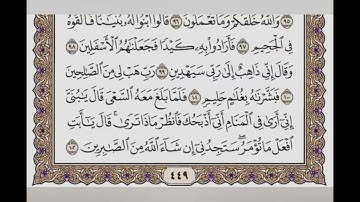 ٩٥ وَاللَّهُ خَلَقَكُمْ وَمَا تَعْمَلُونَ ٩٦ قَالُوا ابْنُوا لَهُ بُنْيَانًا فَأَلْقُوهُ
فِي الْجَحِيمِ ٩٧ فَأَرَادُوا بِهِ كَيْدًا فَجَعَلْنَاهُمُ الْأَسْفَلِينَ ٩٨
وَقَالَ إِنِّي ذَاهِبٌ إِلَىٰ رَبِّي سَيَهْدِينِ ٩٩ رَبِّ هَبْ لِي مِنَ الصَّالِحِينَ
١٠٠ فَبَشَّرْنَاهُ بِغُلَامٍ حَلِيمٍ ١٠١ فَلَمَّا بَلَغَ مَعَهُ السَّعْيَ قَالَ يَا بُنَيَّ
إِنِّي أَرَىٰ فِي الْمَنَامِ أَنِّي أَذْبَحُكَ فَانْظُرْ مَاذَا تَرَىٰ ۚ قَالَ يَا أَبَتِ
افْعَلْ مَا تُؤْمَرُ ۖ سَتَجِدُنِي إِنْ شَاءَ اللَّهُ مِنَ الصَّابِرِينَ ١٠٢
٤٤٩